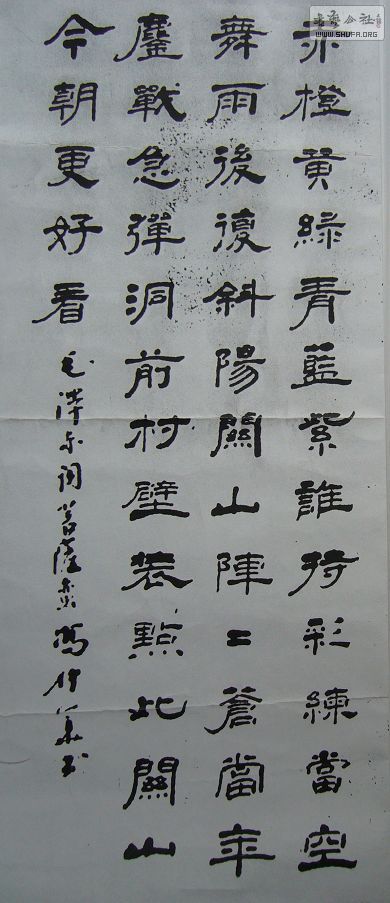 赤橙黃綠青藍紫誰持彩練當空
舞雨後復斜陽關山陣〻蒼當年
鏖戰急彈洞前村壁裝點此關山
今朝更好看
毛澤东词菩薩蛮 馮
公社
WWW.SHUFA.ORG